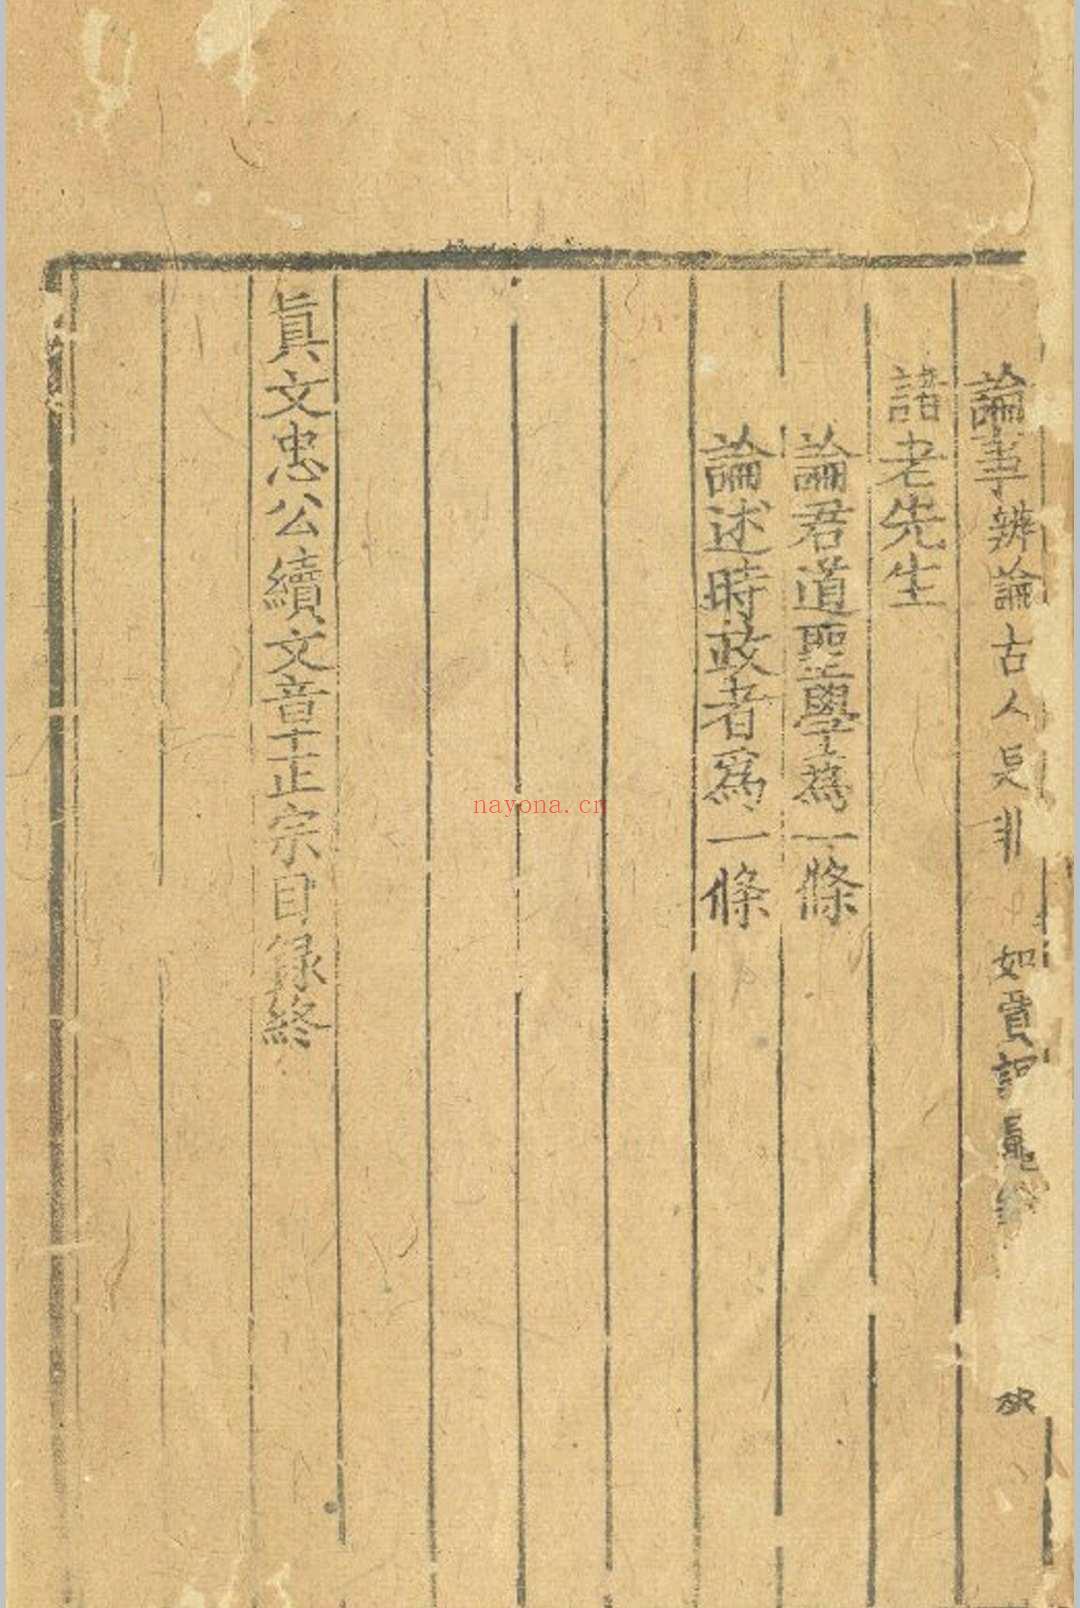 論事辨論古人是非 如賈誼鼂
諸老先生
論君道聖學為一條
論述時政者爲一條
眞文忠公續文章正宗目録終
nayona.cn